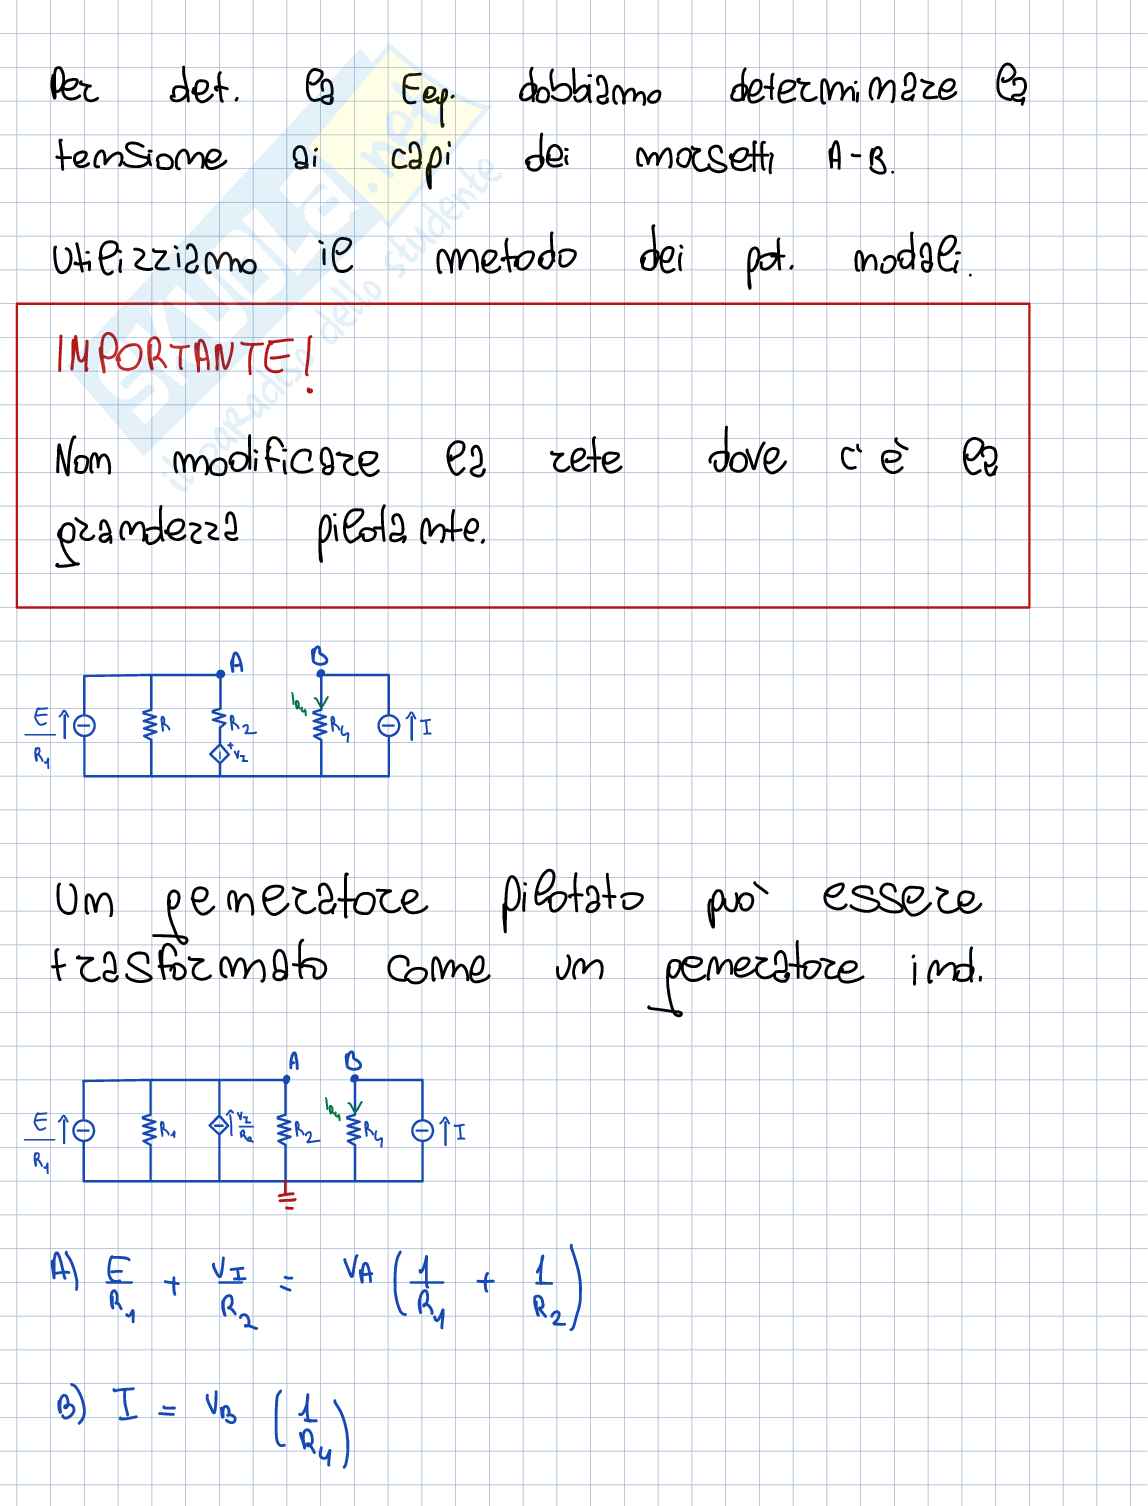 Per det. la Eeq. dobbiamo determinare la
tensione ai capi dei morsetti A-B.
Utilizziamo il metodo dei pot. nodali.
IMPORTANTE!
Non modificare la rete dove c'è la
grandezza pilotante.
A B
E/R1 R R2 +VI IR4 R4 I
Un generatore pilotato può essere
trasformato come un generatore ind.
A B
E/R1 R1 VI/R2 R2 IR4 R4 I
A) E/R1 + VI/R2 = VA (1/R1 + 1/R2)
B) I = VB (1/R4)
SKUOLA.net
il paradiso dello studente